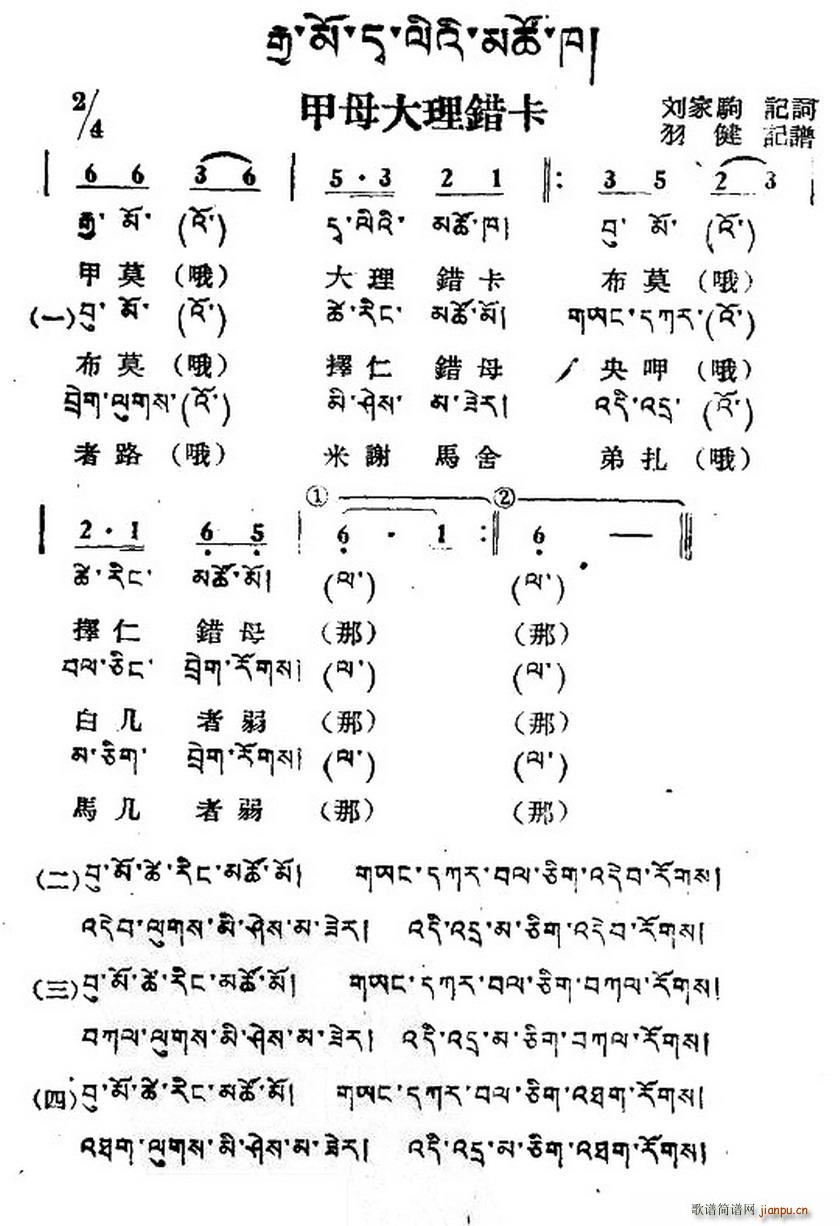 རྒྱ་མོ་དྭ་ལིའི་མཚོ་ཁ།
2/4 甲母大理錯卡 刘家駒 記詞
羽健 記譜
6 6 3 6 5·3 2 1 3 5 2 3
རྒྱ་མོ་(འོ་) དྭ་ལིའི་མཚོ་ཁ། བུ་མོ་(འོ་)
甲莫(哦) 大理錯卡 布莫(哦)
(一)བུ་མོ་(འོ་) ཚེ་རིང་མཚོ་མོ། གཨང་དཀར་(འོ་)
布莫(哦) 擇仁錯母 央呷(哦)
བྲེག་ལུགས་(འོ་) མི་ཤེས་མ་ཟེར། འདི་འདྲ་(འོ་)
者路(哦) 米謝馬舍 弟扎(哦)
① ②
2·1 6 5 6·1 6 —
ཚེ་རིང་མཚོ་མོ། (ལ་) (ལ་)
擇仁錯母 (那) (那)
བལ་ཅིང་བྲེག་རོགས། (ལ་) (ལ་)
白几者弱 (那) (那)
མ་ཅིག་བྲེག་རོགས། (ལ་) (ལ་)
馬几者弱 (那) (那)
(二)བུ་མོ་ཚེ་རིང་མཚོ་མོ། གཨང་དཀར་བལ་ཅིག་འདེབ་རོགས།
འདེབ་ལུགས་མི་ཤེས་མ་ཟེར། འདི་འདྲ་མ་ཅིག་འདེབ་རོགས།
(三)བུ་མོ་ཚེ་རིང་མཚོ་མོ། གཨང་དཀར་བལ་ཅིག་བཀལ་རོགས།
བཀལ་ལུགས་མི་ཤེས་མ་ཟེར། འདི་འདྲ་མ་ཅིག་བཀལ་རོགས།
(四)བུ་མོ་ཚེ་རིང་མཚོ་མོ། གཨང་དཀར་བལ་ཅིག་འཐག་རོགས།
འཐག་ལུགས་མི་ཤེས་མ་ཟེར། འདི་འདྲ་མ་ཅིག་འཐག་རོགས།
歌谱简谱网
jianpu.cn